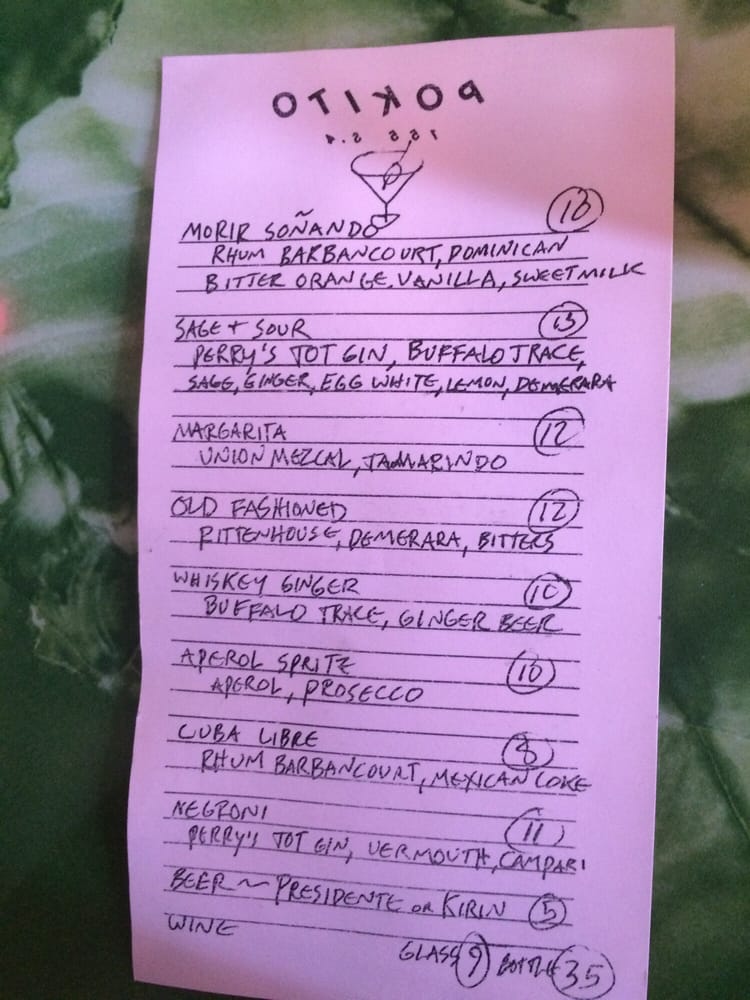 POKITO
155 S.4
MORIR SOÑANDO 10
RHUM BARBANCOURT, DOMINICAN
BITTER ORANGE, VANILLA, SWEET MILK
SAGE + SOUR 13
PERRY'S TOT GIN, BUFFALO TRACE,
SAGE, GINGER, EGG WHITE, LEMON, DEMERARA
MARGARITA 12
UNION MEZCAL, TAMARINDO
OLD FASHIONED 12
RITTENHOUSE, DEMERARA, BITTERS
WHISKEY GINGER 10
BUFFALO TRACE, GINGER BEER
APEROL SPRITZ 10
APEROL, PROSECCO
CUBA LIBRE 8
RHUM BARBANCOURT, MEXICAN COKE
NEGRONI 11
PERRY'S TOT GIN, VERMOUTH, CAMPARI
BEER ~ PRESIDENTE OR KIRIN 5
WINE
GLASS 9 BOTTLE 35